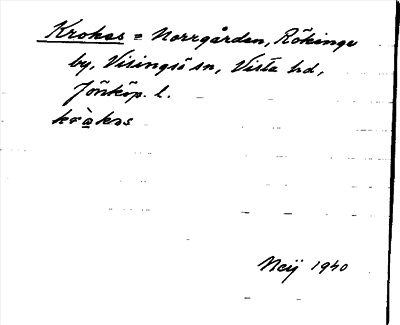 Krokas = Norrgården, Rökinge
by, Visingsö sn, Vista hd,
Jönköp. l.
krὰkas
Neij 1940